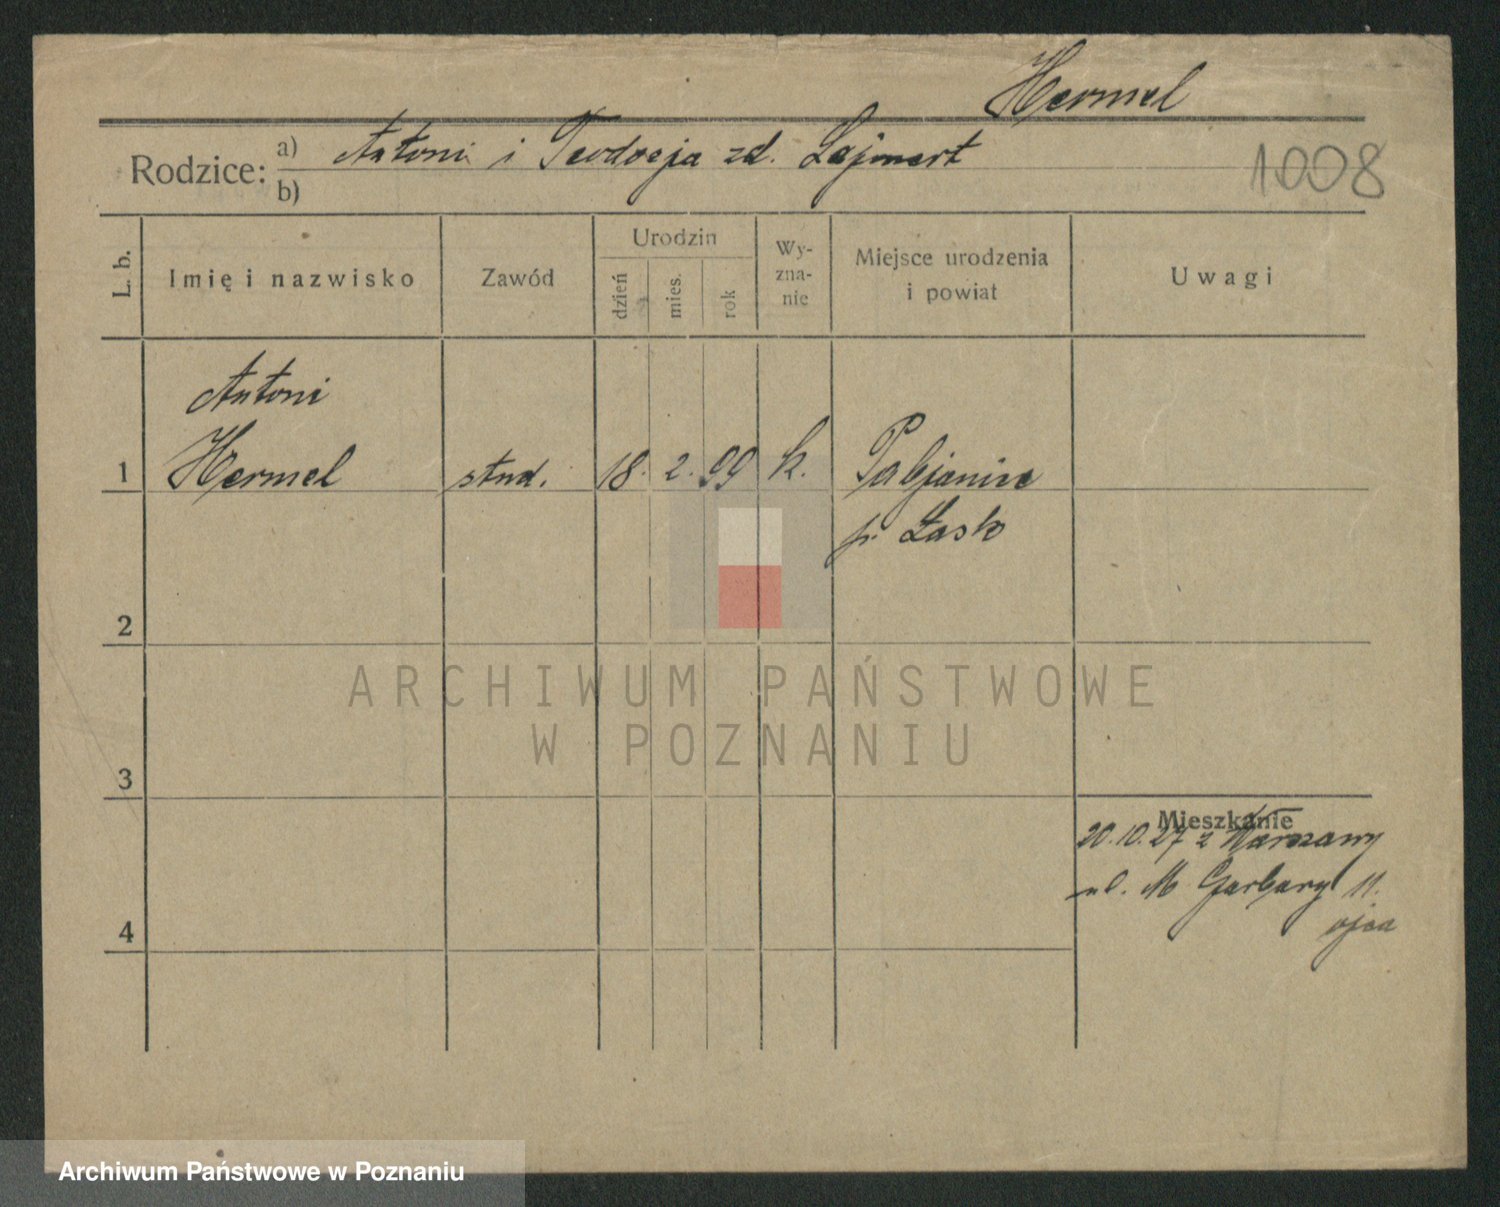 Hermel
Rodzice: a) Antoni i Teodozja zd. Lajmert
b)
1008
L. b.
Imię i nazwisko
Zawód
Urodzin
dzień
mies.
rok
Wy-
zna-
nie
Miejsce urodzenia
i powiat
Uwagi
Antoni
1 Hermel stud. 18. 2. 99 k. Pabjanice
p. Łask
2
3
4
Mieszkanie
20.10.27 z Warszawy
ul. M Garbary 11.
ojca
ARCHIWUM PAŃSTWOWE
W POZNANIU
Archiwum Państwowe w Poznaniu